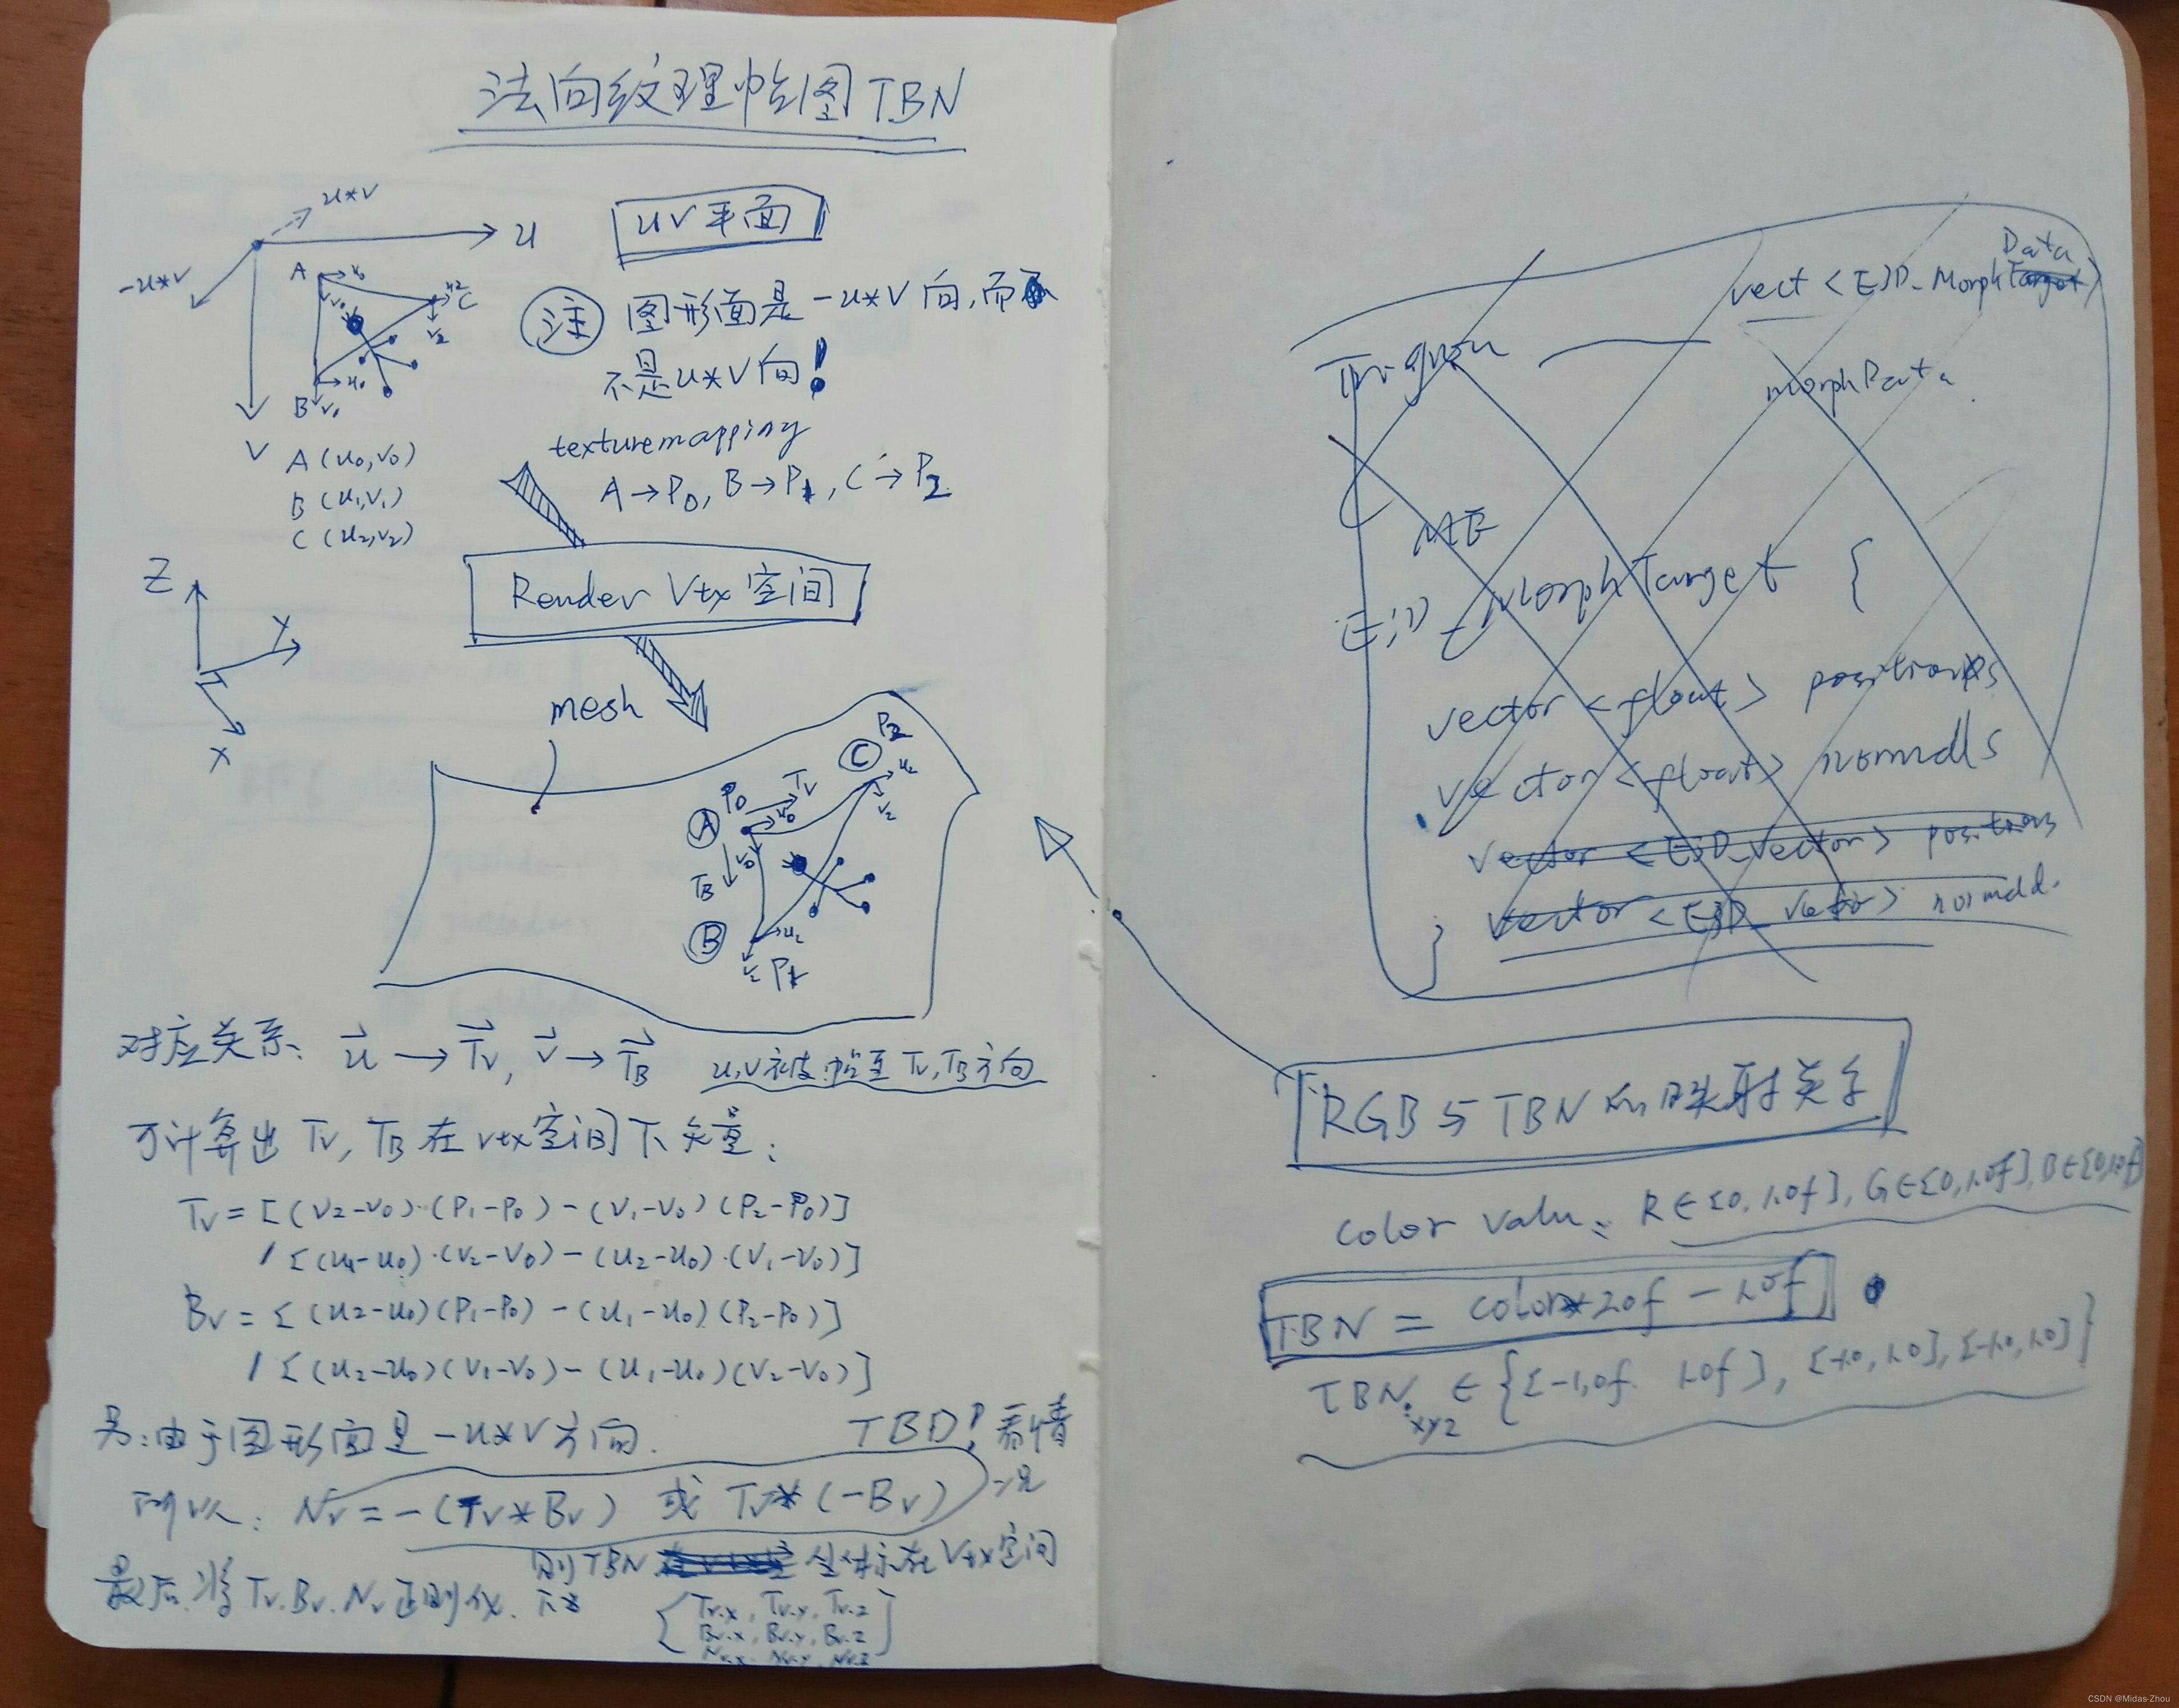 法向纹理帖图TBN
u*v
u
-u*v
v
UV平面
A u₀
v₀
u₂
C
v₂
u₁
B v₁
A (u₀,v₀)
B (u₁,v₁)
C (u₂,v₂)
注 图形面是-u*v向,而
不是u*v向!
texture mapping
A→P₀, B→P₁, C→P₂
Render Vtx空间
Z
Y
X
mesh
P₂
C
u₂
v₂
P₀
Tv
A
u₀
v₀
TB
B
u₂
v₂
P₁
对应关系: u → Tv, v → TB u,v被帖至Tv,TB方向
可计算出Tv, TB在vtx空间下矢量:
Tv = [(v₂-v₀)·(P₁-P₀) - (v₁-v₀)(P₂-P₀)]
/ [(u₁-u₀)·(v₂-v₀) - (u₂-u₀)·(v₁-v₀)]
Bv = [(u₂-u₀)(P₁-P₀) - (u₁-u₀)(P₂-P₀)]
/ [(u₂-u₀)(v₁-v₀) - (u₁-u₀)(v₂-v₀)]
另:由于图形面是-u*v方向. TBD! 看情
况
所以: Nv = -(Tv*Bv) 或 Tv*(-Bv)
最后,将Tv.Bv.Nv正则化.
则TBN 坐标系在Vtx空间
下
[Tv.x, Tv.y, Tv.z
Bv.x, Bv.y, Bv.z
Nv.x, Nv.y, Nv.z]
Data
vect <E3D_MorphTarget>
morphData
E3D_MorphTarget {
vector <float> positions
vector <float> normals
vector <E3D_Vector> positions
vector <E3D_Vector> normal
}
RGB与TBN的映射关系
color value: R∈[0, 1.0f], G∈[0, 1.0f], B∈[0, 1.0f]
TBN = color*2.0f - 1.0f
TBN.xyz ∈ {[-1.0f, 1.0f], [-1.0, 1.0], [-1.0, 1.0]}
CSDN @Midas-Zhou